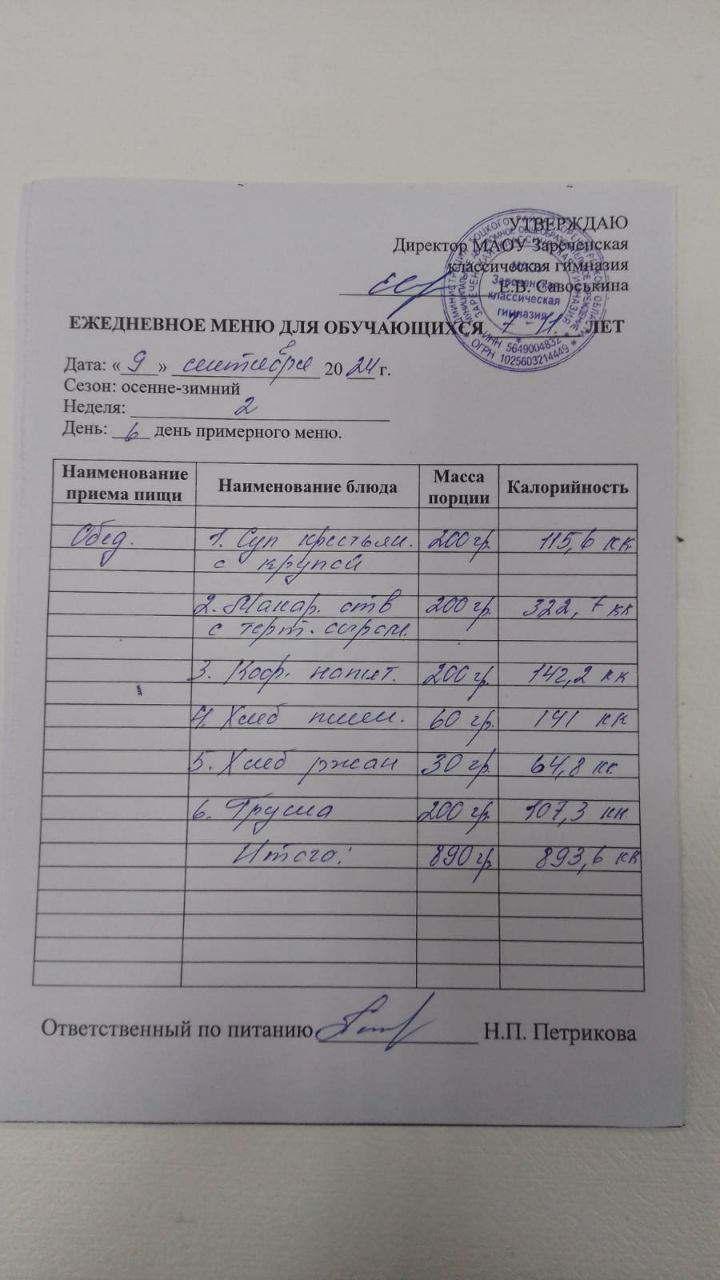 УТВЕРЖДАЮ
Директор МАОУ Зареченская
классическая гимназия
Е.В. Савоськина
Зареченская
классическая
гимназия
ИНН 5649004832
ОГРН 1025603214449
ЕЖЕДНЕВНОЕ МЕНЮ ДЛЯ ОБУЧАЮЩИХСЯ 7-11 ЛЕТ
Дата: « 9 » сентября 2024 г.
Сезон: осенне-зимний
Неделя: 2
День: 6 день примерного меню.
Наименование приема пищи Наименование блюда Масса порции Калорийность
Обед. 1. Суп крестьян. 200 гр. 115,6 кк
с крупой
2. Макар. отв 200 гр. 322,7 кк
с терт. сыром.
3. Коф. напит. 200 гр. 142,2 кк
4. Хлеб пшен. 60 гр. 141 кк
5. Хлеб ржан 30 гр. 64,8 кк
6. Груша 200 гр. 107,3 кк
Итого: 890 гр. 893,6 кк
Ответственный по питанию Н.П. Петрикова